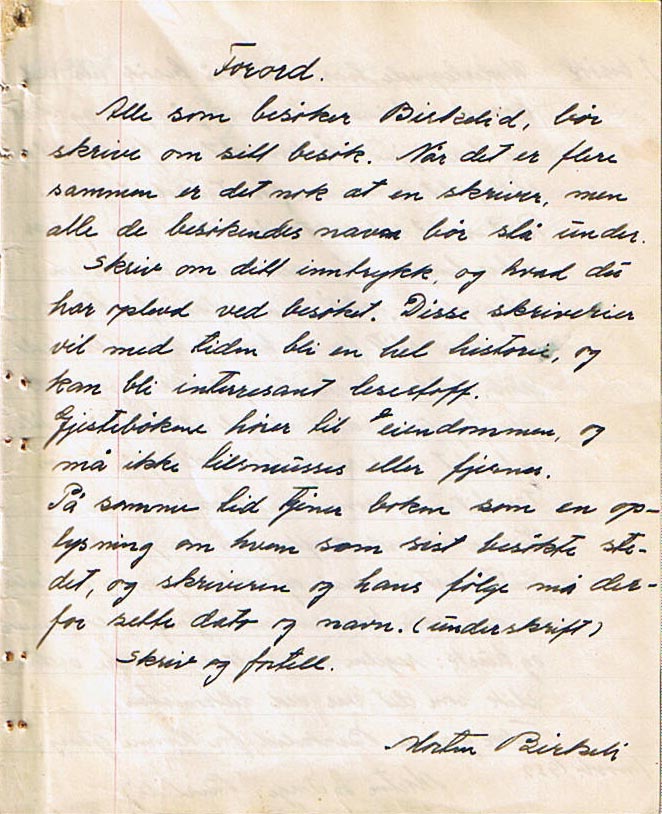 Forord.
Alle som besøker Birkelid, bør
skrive om sitt besøk. Når det er flere
sammen er det nok at en skriver, men
alle de besøkendes navn bør stå under.
Skriv om ditt inntrykk, og hvad du
har oplevd ved besøket. Disse skriverier
vil med tiden bli en hel historie, og
kan bli interresant lesestoff.
Gjestebøkene hører til eiendommen, og
må ikke tilsmusses eller fjernes.
På samme tid tjener boken som en op-
lysning om hvem som sist besøkte ste-
det, og skriveren og hans følge må der-
for sette dato og navn. (underskrift)
Skriv og fortell.
Morten Birkeli